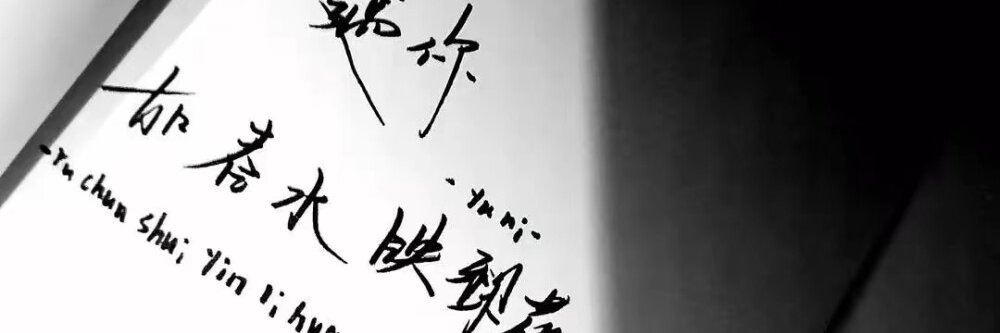 遇你
-yu ni-
如春水映梨花
-ru chun shui yin li hua